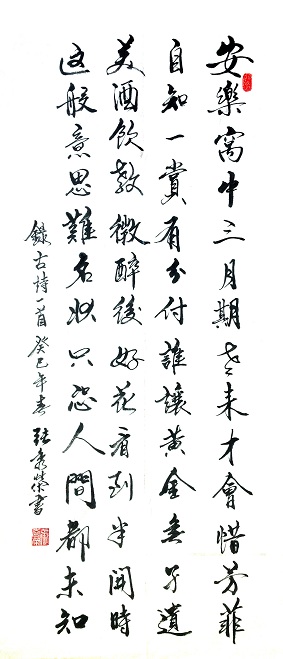 安樂窩中三月期老来才會惜芳菲
自知一賞有分付誰讓黄金無孑遺
美酒飲教微醉後好花看到半開時
这般意思難名状只恐人間都未知
錄古詩一首癸巳年春張秀榮書